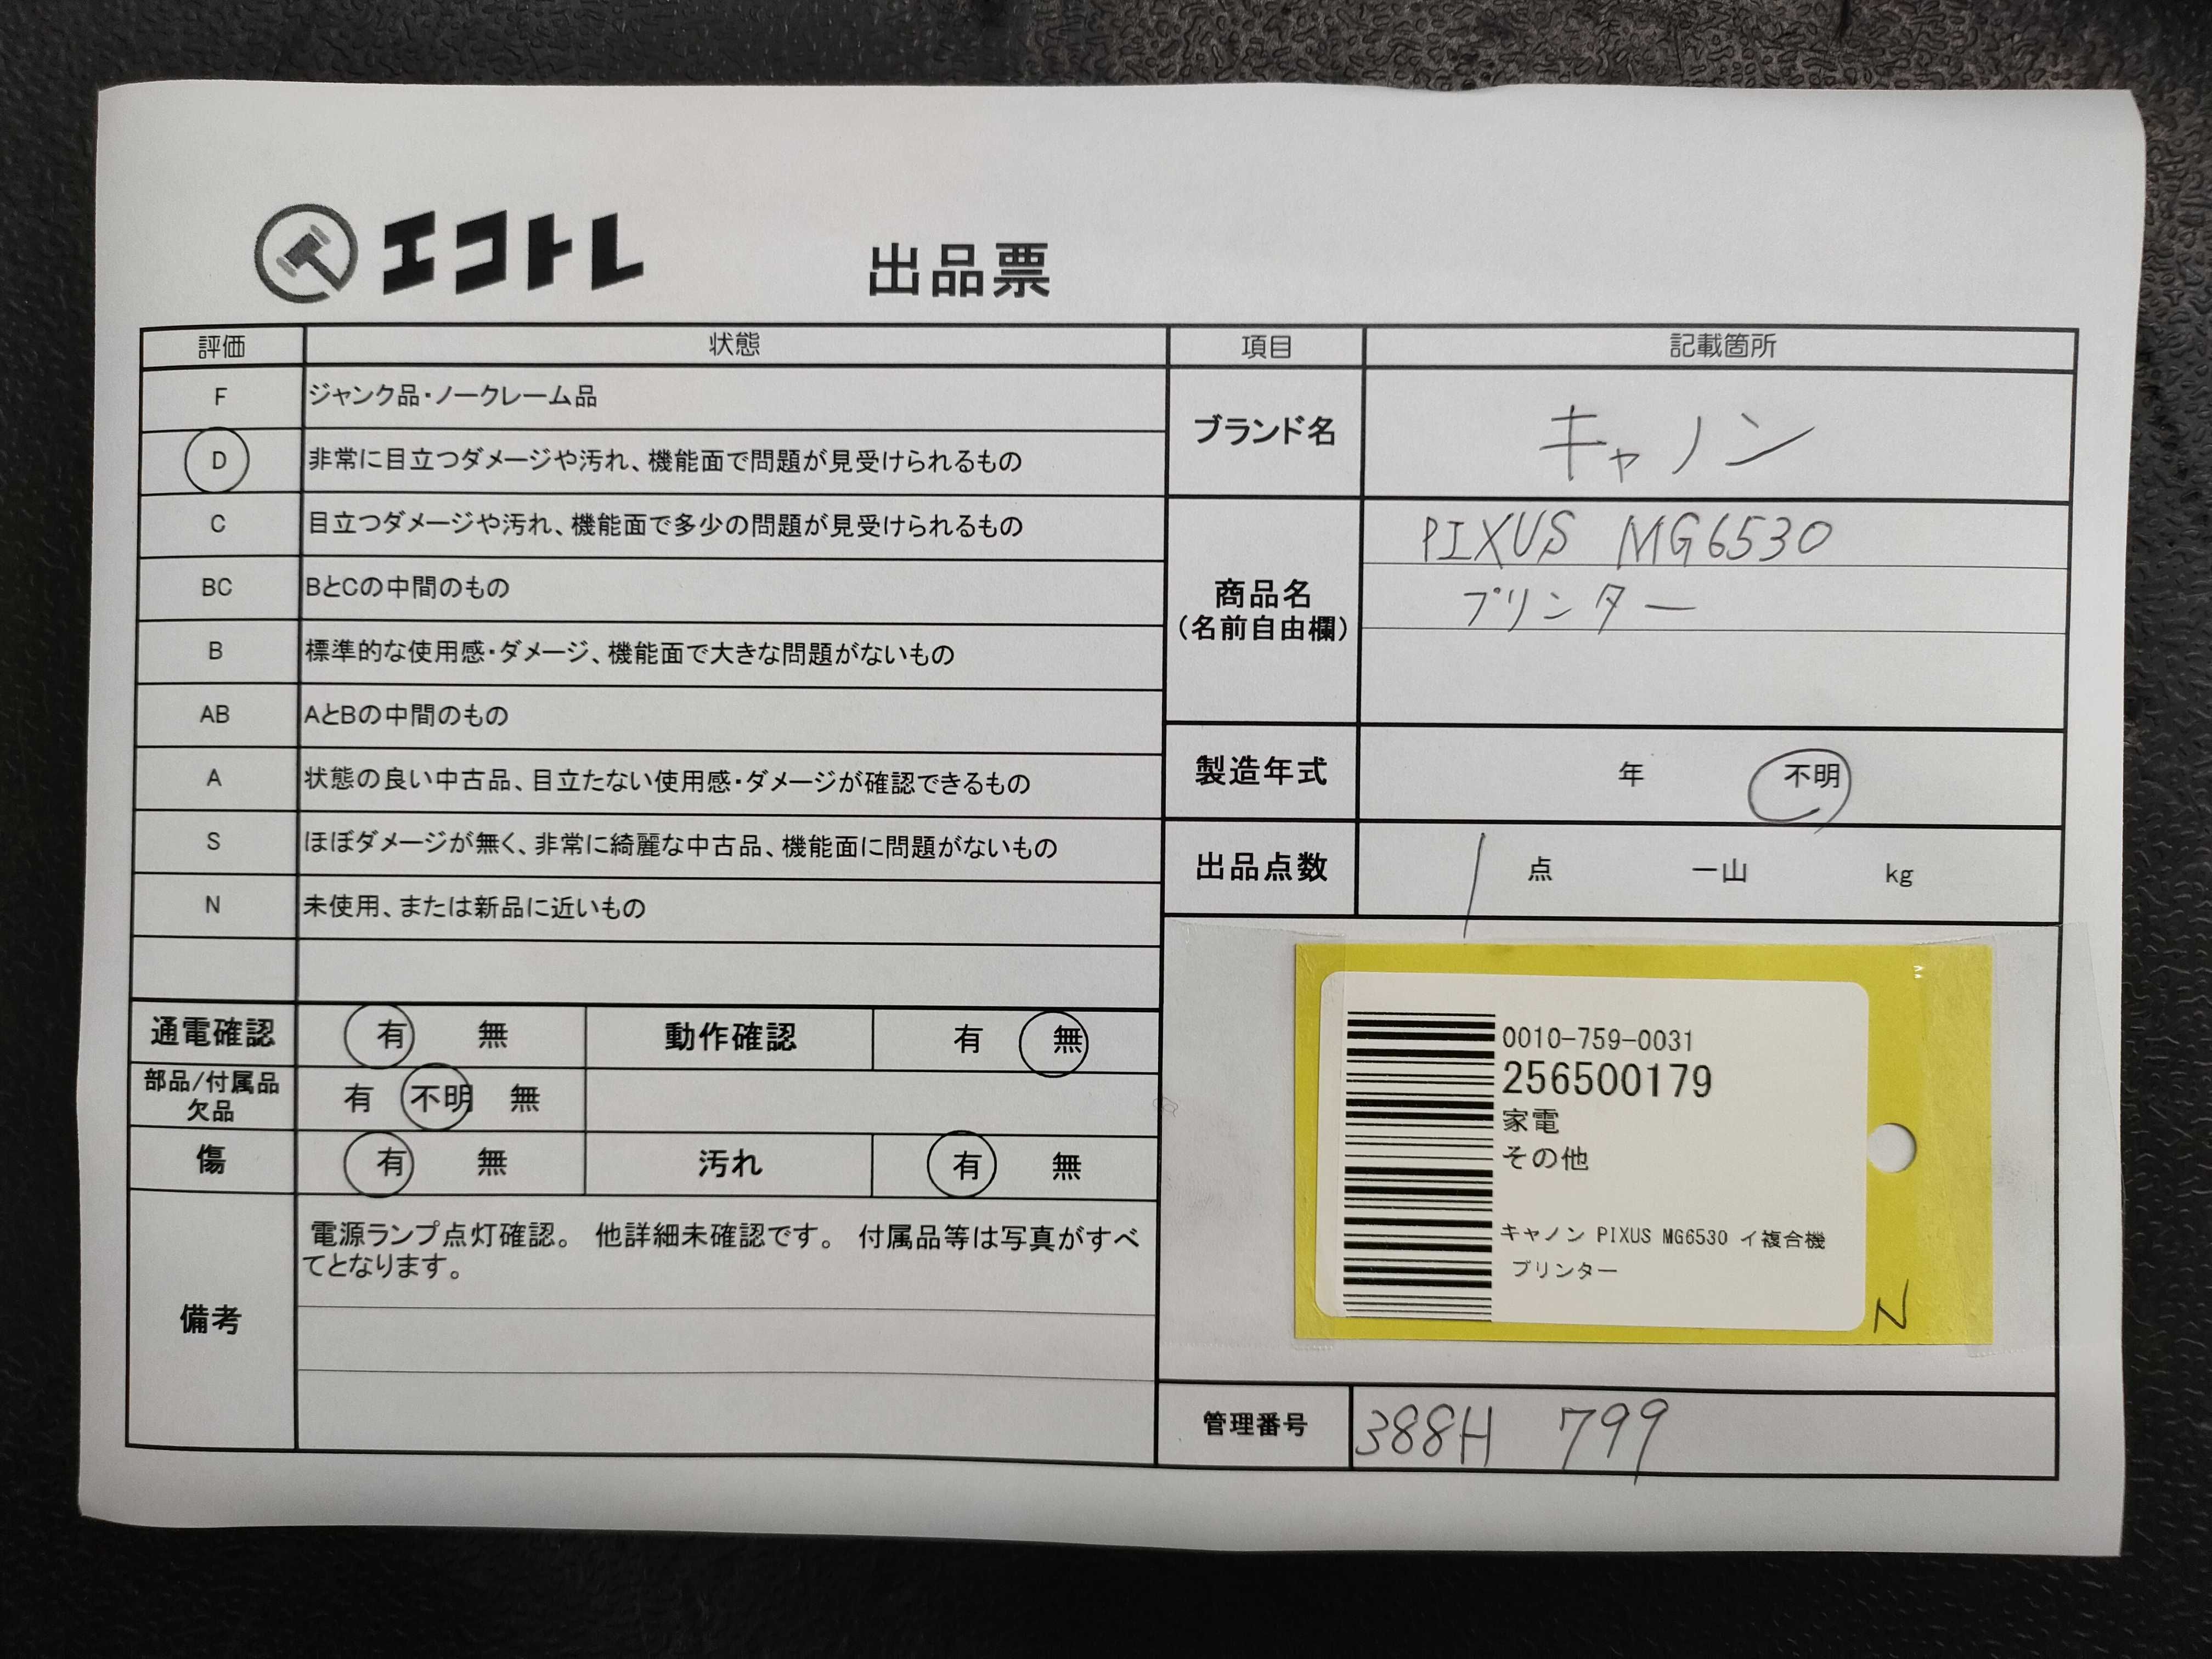 エコトレ
出品票
評価 状態
F ジャンク品・ノークレーム品
D 非常に目立つダメージや汚れ、機能面で問題が見受けられるもの
C 目立つダメージや汚れ、機能面で多少の問題が見受けられるもの
BC BとCの中間のもの
B 標準的な使用感・ダメージ、機能面で大きな問題がないもの
AB AとBの中間のもの
A 状態の良い中古品、目立たない使用感・ダメージが確認できるもの
S ほぼダメージが無く、非常に綺麗な中古品、機能面に問題がないもの
N 未使用、または新品に近いもの
通電確認 有 無 動作確認 有 無
部品/付属品
欠品 有 不明 無
傷 有 無 汚れ 有 無
備考
電源ランプ点灯確認。 他詳細未確認です。 付属品等は写真がすべ
てとなります。
項目 記載箇所
ブランド名 キャノン
商品名
(名前自由欄)
PIXUS MG6530
プリンター
製造年式 年 不明
出品点数 1 点 一山 kg
0010-759-0031
256500179
家電
その他
キャノン PIXUS MG6530 イ複合機
プリンター
N
管理番号 388H 799